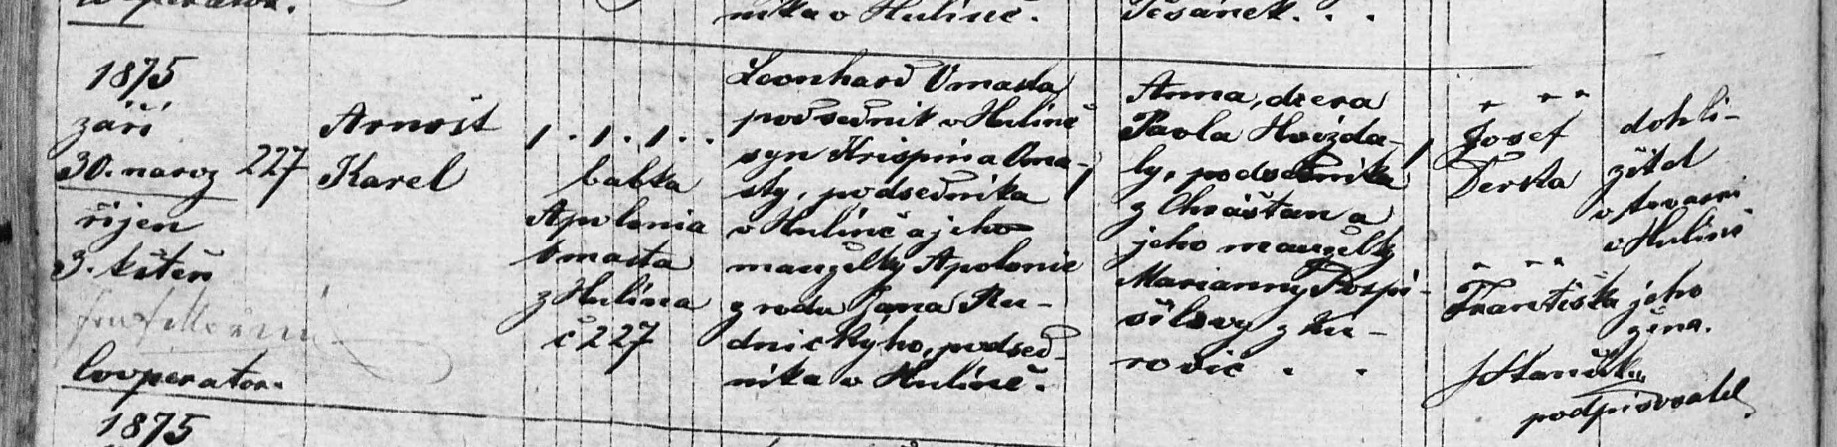 níka v Hulíně.
Tesánek. . .
1875
září
30. naroz
říjen
3. křtěn
Cooperator.
227
Arnošt
Karel
1 . 1 . 1 . .
babka
Apolonia
Omasta
z Hulína
č 227
Leonhard Omasta
podsedník v Hulíně
syn Krispina Oma-
sty, podsedníka
v Hulíně a jeho
manželky Apolonie
z rodu Jana Ru-
dnickyho, podsed-
níka v Hulíně.
Anna, dcera
Pavla Hvízda-
ly, podsedníka
z Chrášťan a
jeho manželky
Marianny Pospí-
šilovy z Ku-
rovic . .
+ + +
Josef
Derka
+ + +
Františka
dohlí-
žitel
v Hulíně
jeho
žena.
podpisovatel
1875